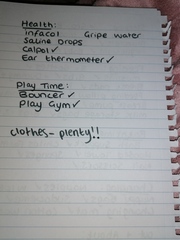 Health:
infacol Gripe water
Saline Drops
Calpol ✓
Ear thermometer ✓
Play Time:
Bouncer ✓
Play Gym ✓
clothes - plenty!!